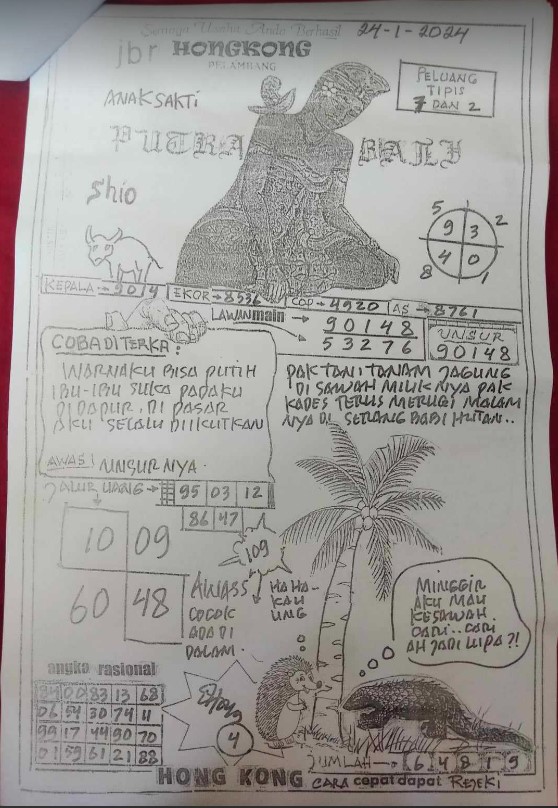 Semoga Usaha Anda Berhasil
24-1-2024
jbr HONGKONG
PELAMBANG
PELUANG
TIPIS
7 DAN 2
ANAK SAKTI
PUTRA BALI
Shio
5
2
9 3
4 0
8
1
KEPALA → 9014
EKOR → 8536
COP → 4920
AS → 8761
LAWAN main → 90148
53276
UNSUR
90148
COBA DITERKA :
WARNAKU BISA PUTIH
IBU-IBU SUKA PADAKU
DI DAPUR, DI PASAR
AKU SELALU DIIKUTKAN
AWAS! UNSURNYA.
PAK TANI TANAM JAGUNG
DI SAWAH MILIKNYA PAK
KADES TERUS MERUGI MALAM
NYA DI SERANG BABI HUTAN..
JALUR UANG → 95 03 12
86 47
10 09
60 48
109
AWASS
COCOK
ADA DI
DALAM.
HAHA-
KAU
UNG
MINGGIR
AKU MAU
KESAWAH.
CARI.. CARI
AH JADI LUPA ?!
angka rasional
84 00 83 13 68
06 54 30 74 11
99 17 44 90 70
01 59 61 21 88
4
JUMLAH → 6 4 8 1 5
HONG KONG CARA cepat dapat REJEKI